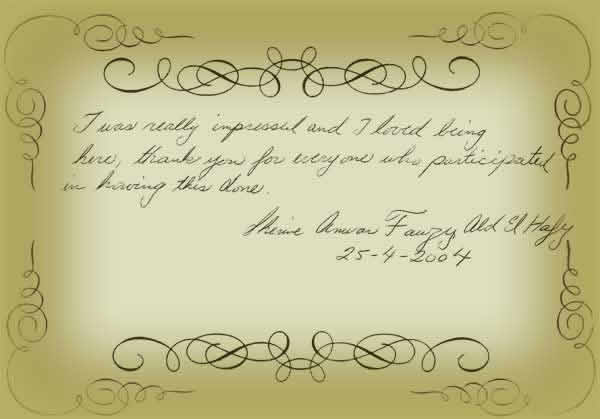 I was really impressed and I loved being
here, thank you for everyone who participated
in having this done.
Sherine Anwar Fawzy Abd El Hafy
25-4-2004